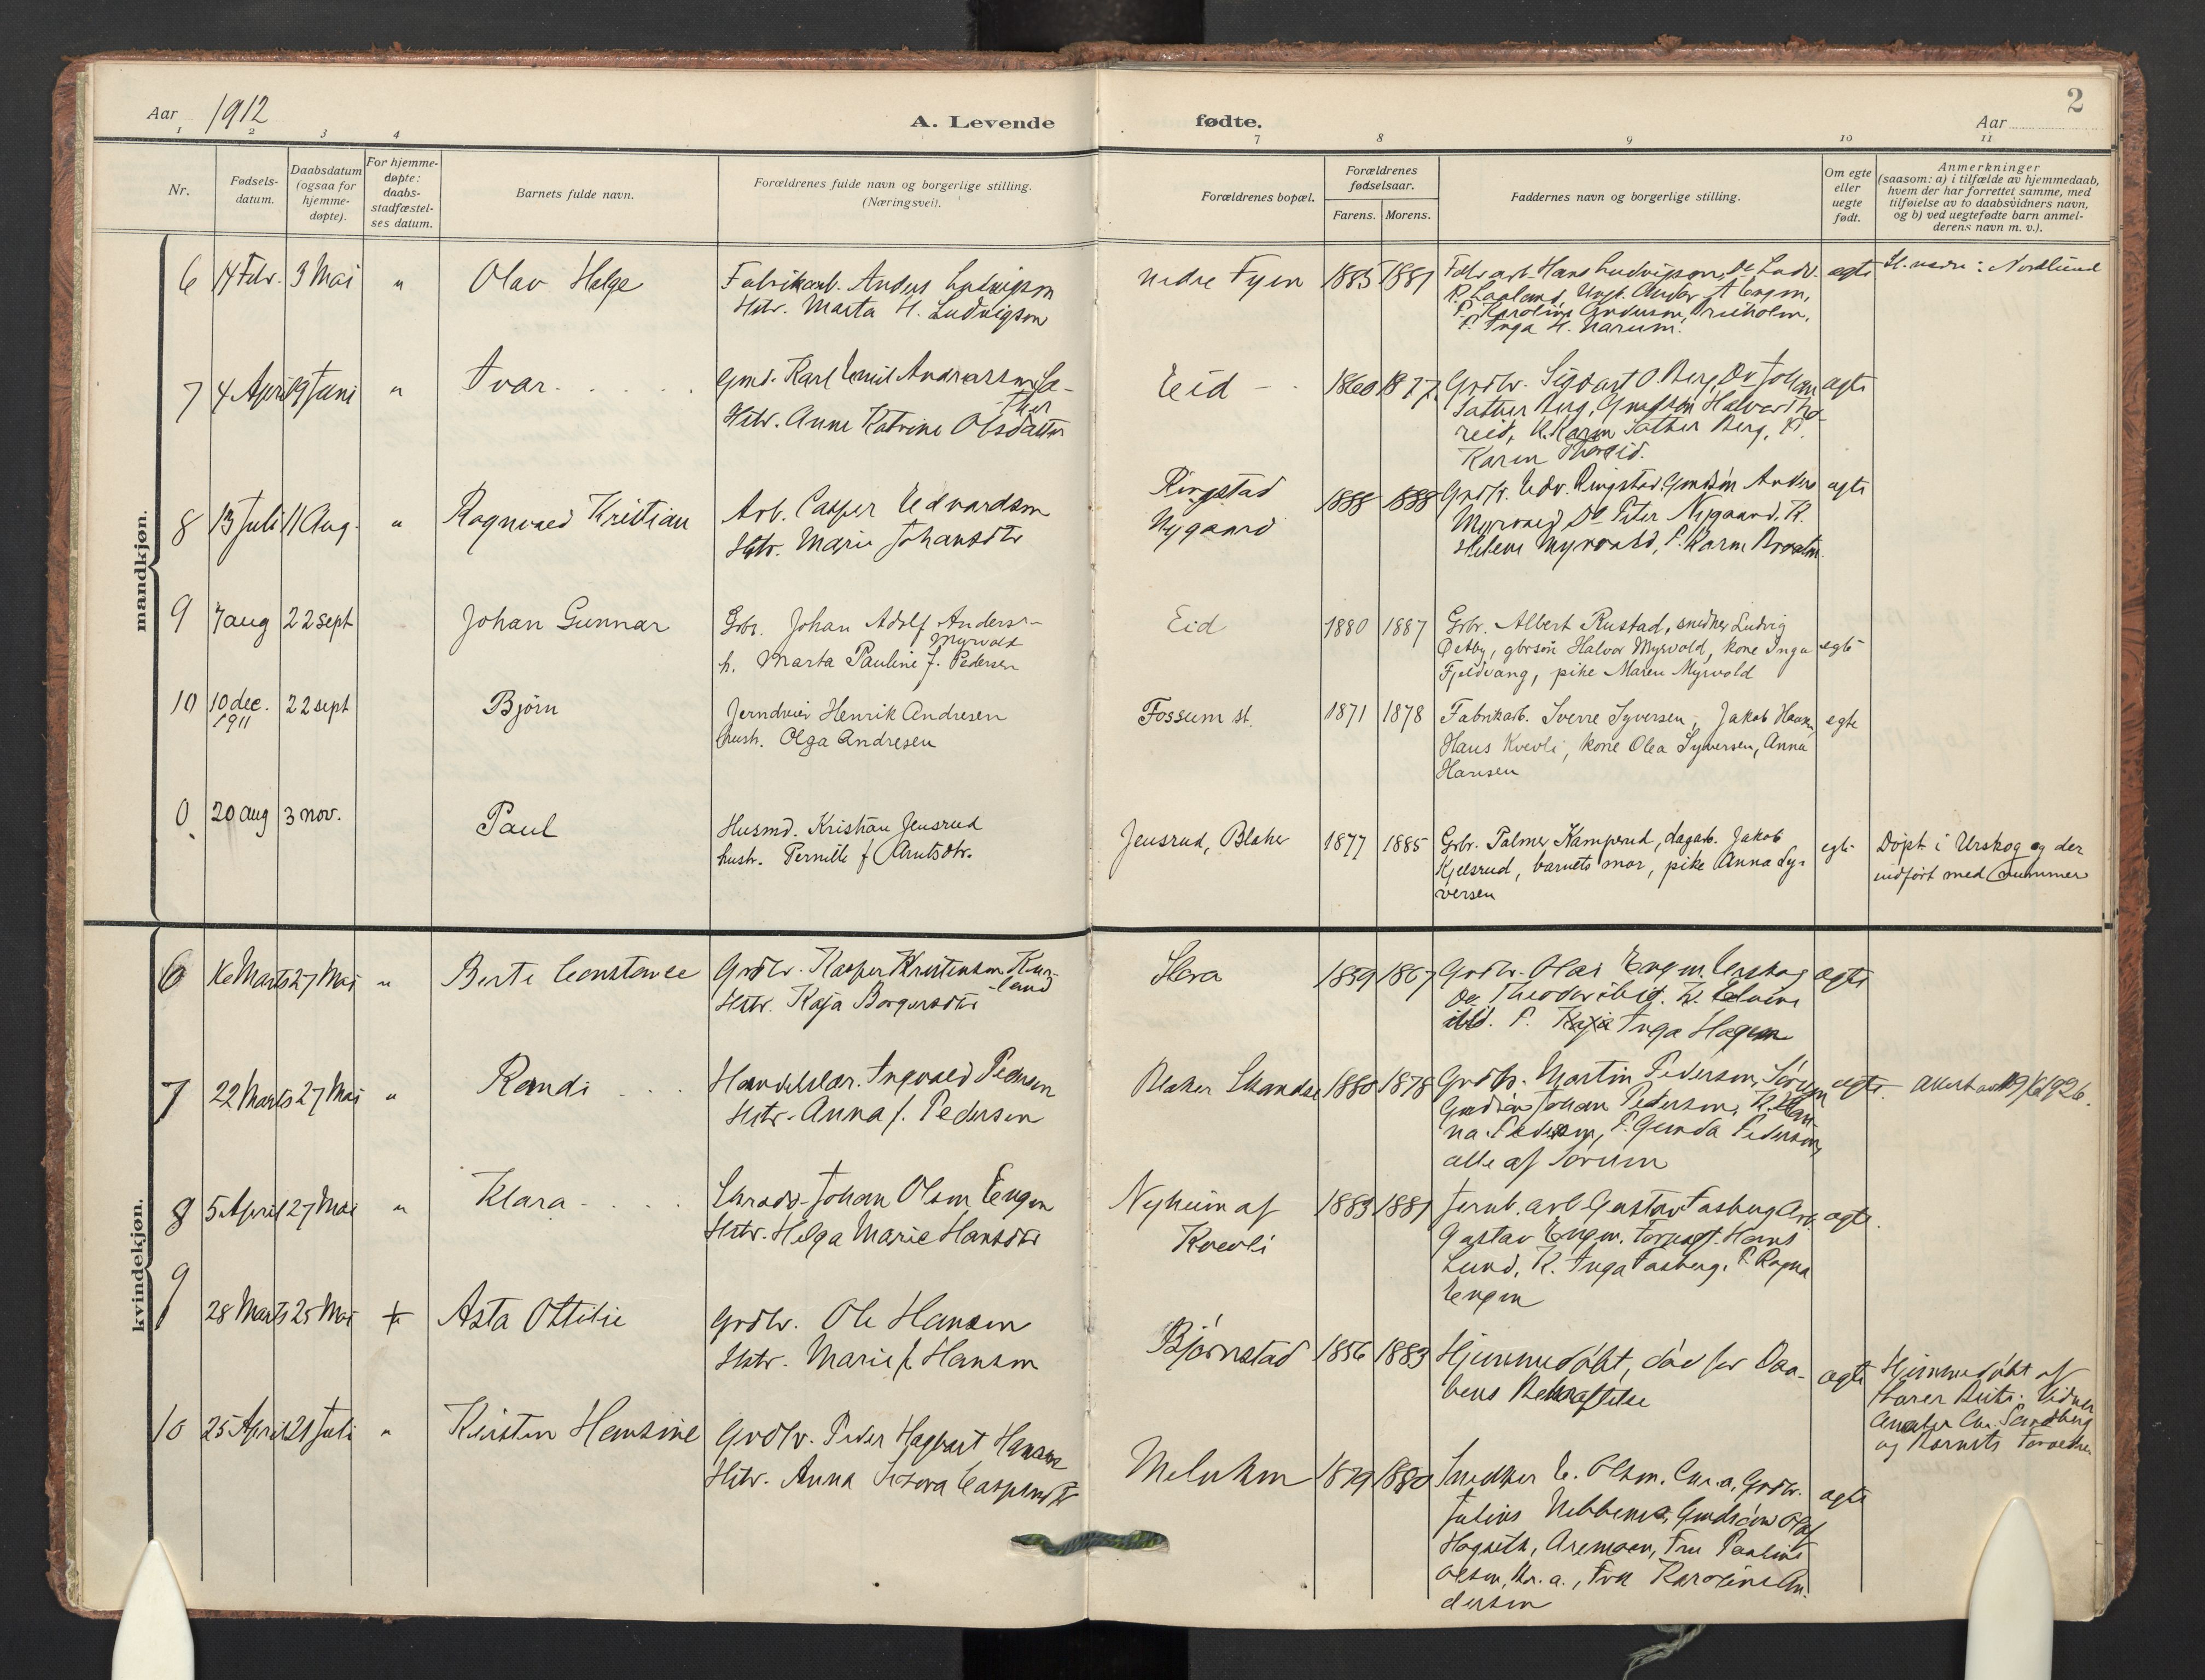 2
Aar 1912
A. Levende
fødte.
Aar
1 2 3 4 7 8 9 10 11
Nr.
Fødsels-
datum.
Daabsdatum
(ogsaa for
hjemme-
døpte).
For hjemme-
døpte:
daabs-
stadfæstel-
ses datum.
Barnets fulde navn.
Forældrenes fulde navn og borgerlige stilling.
(Næringsvei).
Forældrenes bopæl.
Forældrenes
fødselsaar.
Farens. Morens.
Faddernes navn og borgerlige stilling.
Om egte
eller
uegte
født.
Anmerkninger
(saasom: a) i tilfælde av hjemmedaab,
hvem der har forrettet samme, med
tilføielse av to daabsvidners navn,
og b) ved uegtefødte barn anmel-
derens navn m. v.).
mandkjøn.
6 14 Febr. 3 Mai " Olav Helge
Fabrikarb. Anders Ludvigsen
Hstr. Marta H. Ludvigsen
nedre Fyen 1885 1881
Fabr arb. Hans Ludvigsen, Do Ludv.
Karoline Andersen,
P. Inga H. Narum.
egte
: Nordlund
7 4 April 9 Juni " Ivar
Gmd. Karl Emil Andreassen Sa-
ther
Hstr. Anne Katrine Olsdatter
Eid 1860 1877
Grdbr. Sigvart O. Berg, Do Johan
Sather Berg, Halvor Tho-
reid, K. Karen Sather Berg, P.
Karen Thoreid.
egte
8 13 Juli 11 Aug. " Ragnvald Kristian
Arb. Casper Edvardsen
Hstr. Marie Johansdtr
Ringstad
Nygaard
1888 1888
Grdbr. Edv. Ringstad. Gmdsøn Anders
Myrvold Do Peter Nygaard, K.
Helene Myrvold, P. Karen
egte
9 7 aug 22 sept Johan Gunnar
Grbr. Johan Adolf Anders-
Myrvold
h. Marta Pauline f. Pedersen
Eid 1880 1887
Grbr. Albert Rustad, snedker Ludvig
Østby, gbrsøn Halvor Myrvold, kone Inga
Fjeldvang, pike Maren Myrvold
egte
10 10 dec. 22 sept Bjørn
1911
Jerndreier Henrik Andresen
hustr. Olga Andresen
Fossum st. 1871 1878
Fabrikarb. Sverre Syversen, Jakob Haaken,
Hans Kvevli, kone Olea Syversen, Anna
Hansen
egte
0 20 aug 3 nov. Paul
Husmd. Kristian Jensrud
hustr. Pernille f Arntsdtr.
Jensrud, Blaker 1877 1885
Grbr. Palmer Kamperud, dagarb. Jakob
Kjelsrud, barnets mor, pike Anna Sy-
versen
egte
Døpt i Urskog og der
indført med nummer
kvindekjøn.
6 16 Marts 27 Mai " Berte Constance
Grdbr. Kasper Kristensen Kur-
land
Hstr. Kaja Borgersdtr
Hora 1859 1867
Grdbr. Olai Engen. Urskog
Do Theodor ibid. K.
ibid. P. Kaja Inga Hagen
egte
7 22 Marts 27 Mai " Randi
Handelsbær. Ingvald Pedersen
Hstr. Anna f. Pedersen
Blaker Skandse 1880 1878
Grdbr. Martin Pedersen, Sørum
Gmdsøn Johan Pedersen, K. Han-
na Pedersen, P. Gunda Pedersen,
alle af Sørum
egte
9/6 1926.
8 5 April 27 Mai " Klara
Johan Olsen Engen
Hstr. Helga Marie Hansdtr
Nyheim af
Kvevli
1883 1881
Jernb. arb Gustav Fasberg Arb.
Gustav Engen. Hans
Lund, K. Inga Fasberg, P. Ragna
Engen
egte.
9 28 Marts 25 Mai + Asta Ottilie
Grdbr. Ole Hansen
Hstr. Marie f. Hansen
Bjørnstad 1856 1883
Hjemmedøbt, død før Daa-
bens Bekræftelse
egte
Hjemmedøbt af
Vidner
Sandberg
og Barnets Forældre
10 25 April 21 Juli " Kirsten Hensine
Grdbr. Peder Hagbart Hansen
Hstr. Anna Casperdtr
1879 1880
Snedker E. Olsen. Chr.a, Grdbr.
Julius Nebbenes, Gmdsøn Olaf
Hogseth, Aremoen, Fru Pauline
Olsen, Kr.a., Fru Karoline An-
dersen
egte